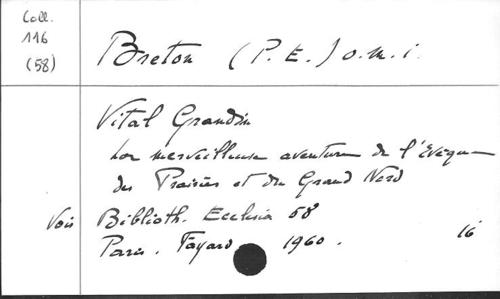 Coll.
116
(58)
Breton (P. E.) o.m.i.
Vital Grandin
La merveilleuse aventure de l'Évêque
des Prairies et du Grand Nord
Voir Biblioth. Ecclesia 58
Paris. Fayard 1960. 16